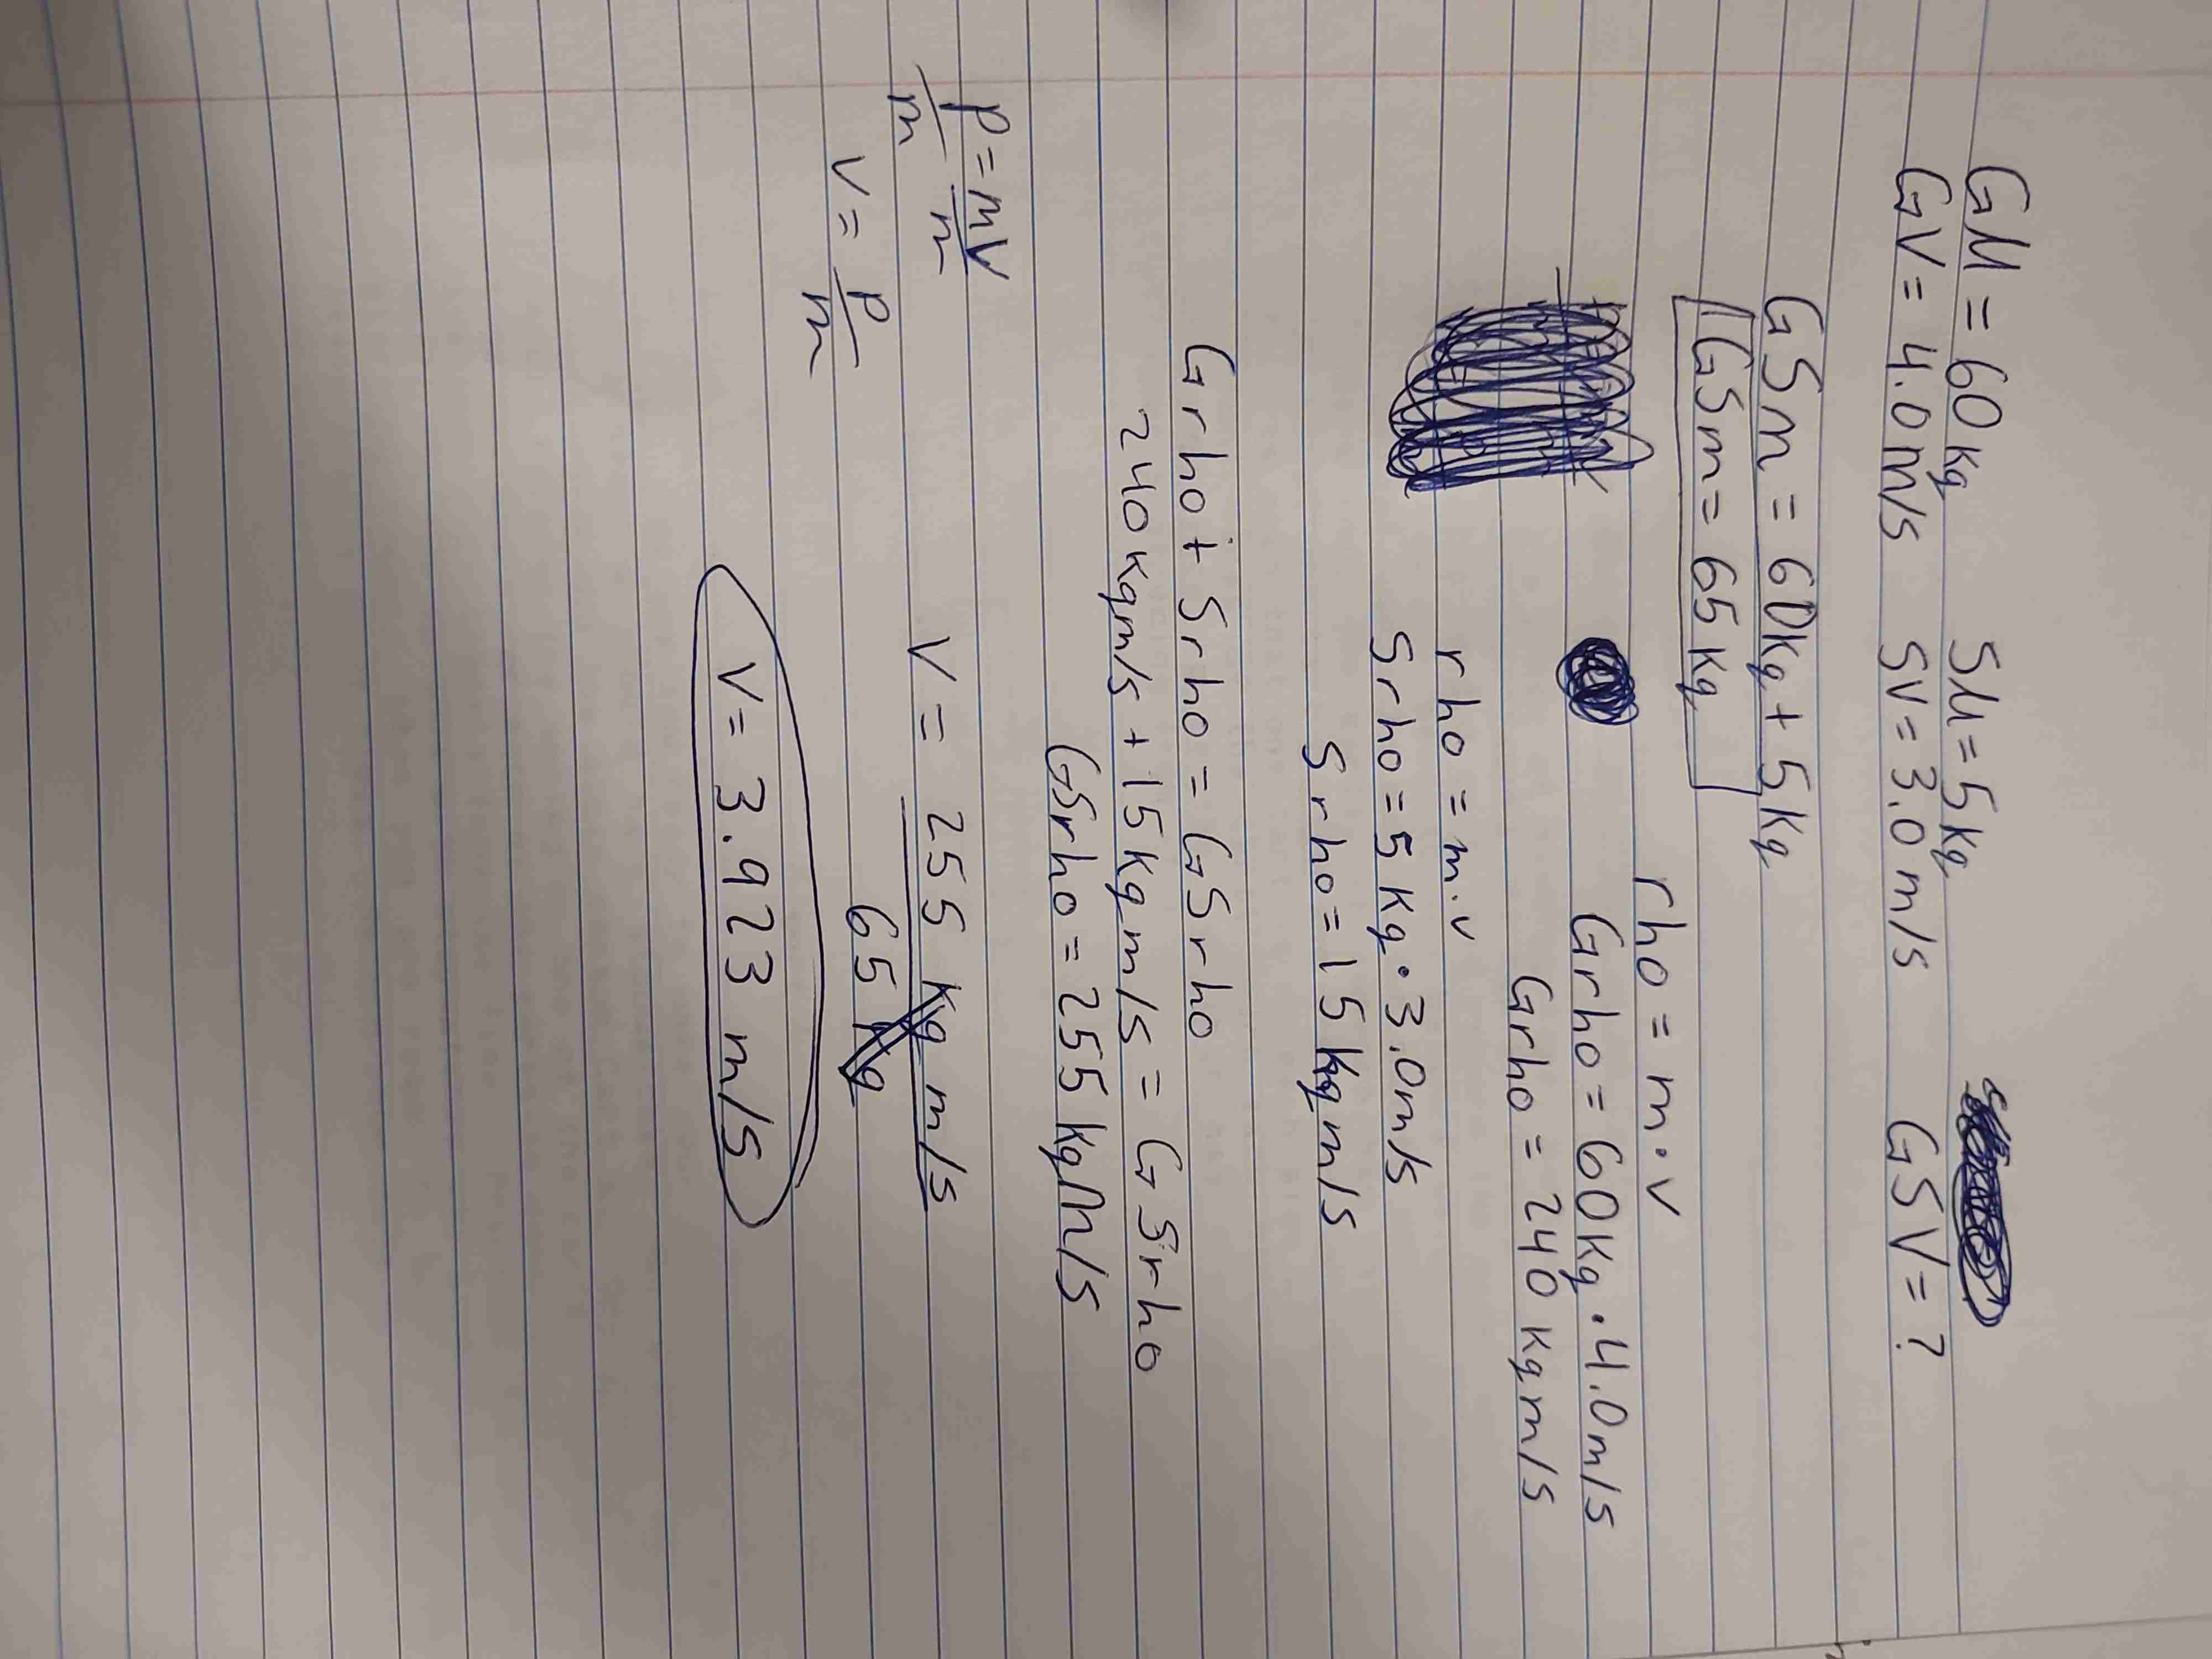 GM = 60 kg SM = 5 kg
GV = 4.0 m/s SV = 3.0 m/s GSV = ?
GSm = 60kg + 5kg
GSm = 65 kg
rho = m · v
Grho = 60kg · 4.0 m/s
Grho = 240 kgm/s
rho = m · v
Srho = 5 kg · 3.0m/s
Srho = 15 kgm/s
Grho + Srho = GSrho
240 kgm/s + 15 kgm/s = GSrho
GSrho = 255 kgm/s
p = mv
m m
v = p
m
V = 255 kg m/s
65 kg
V = 3.923 m/s